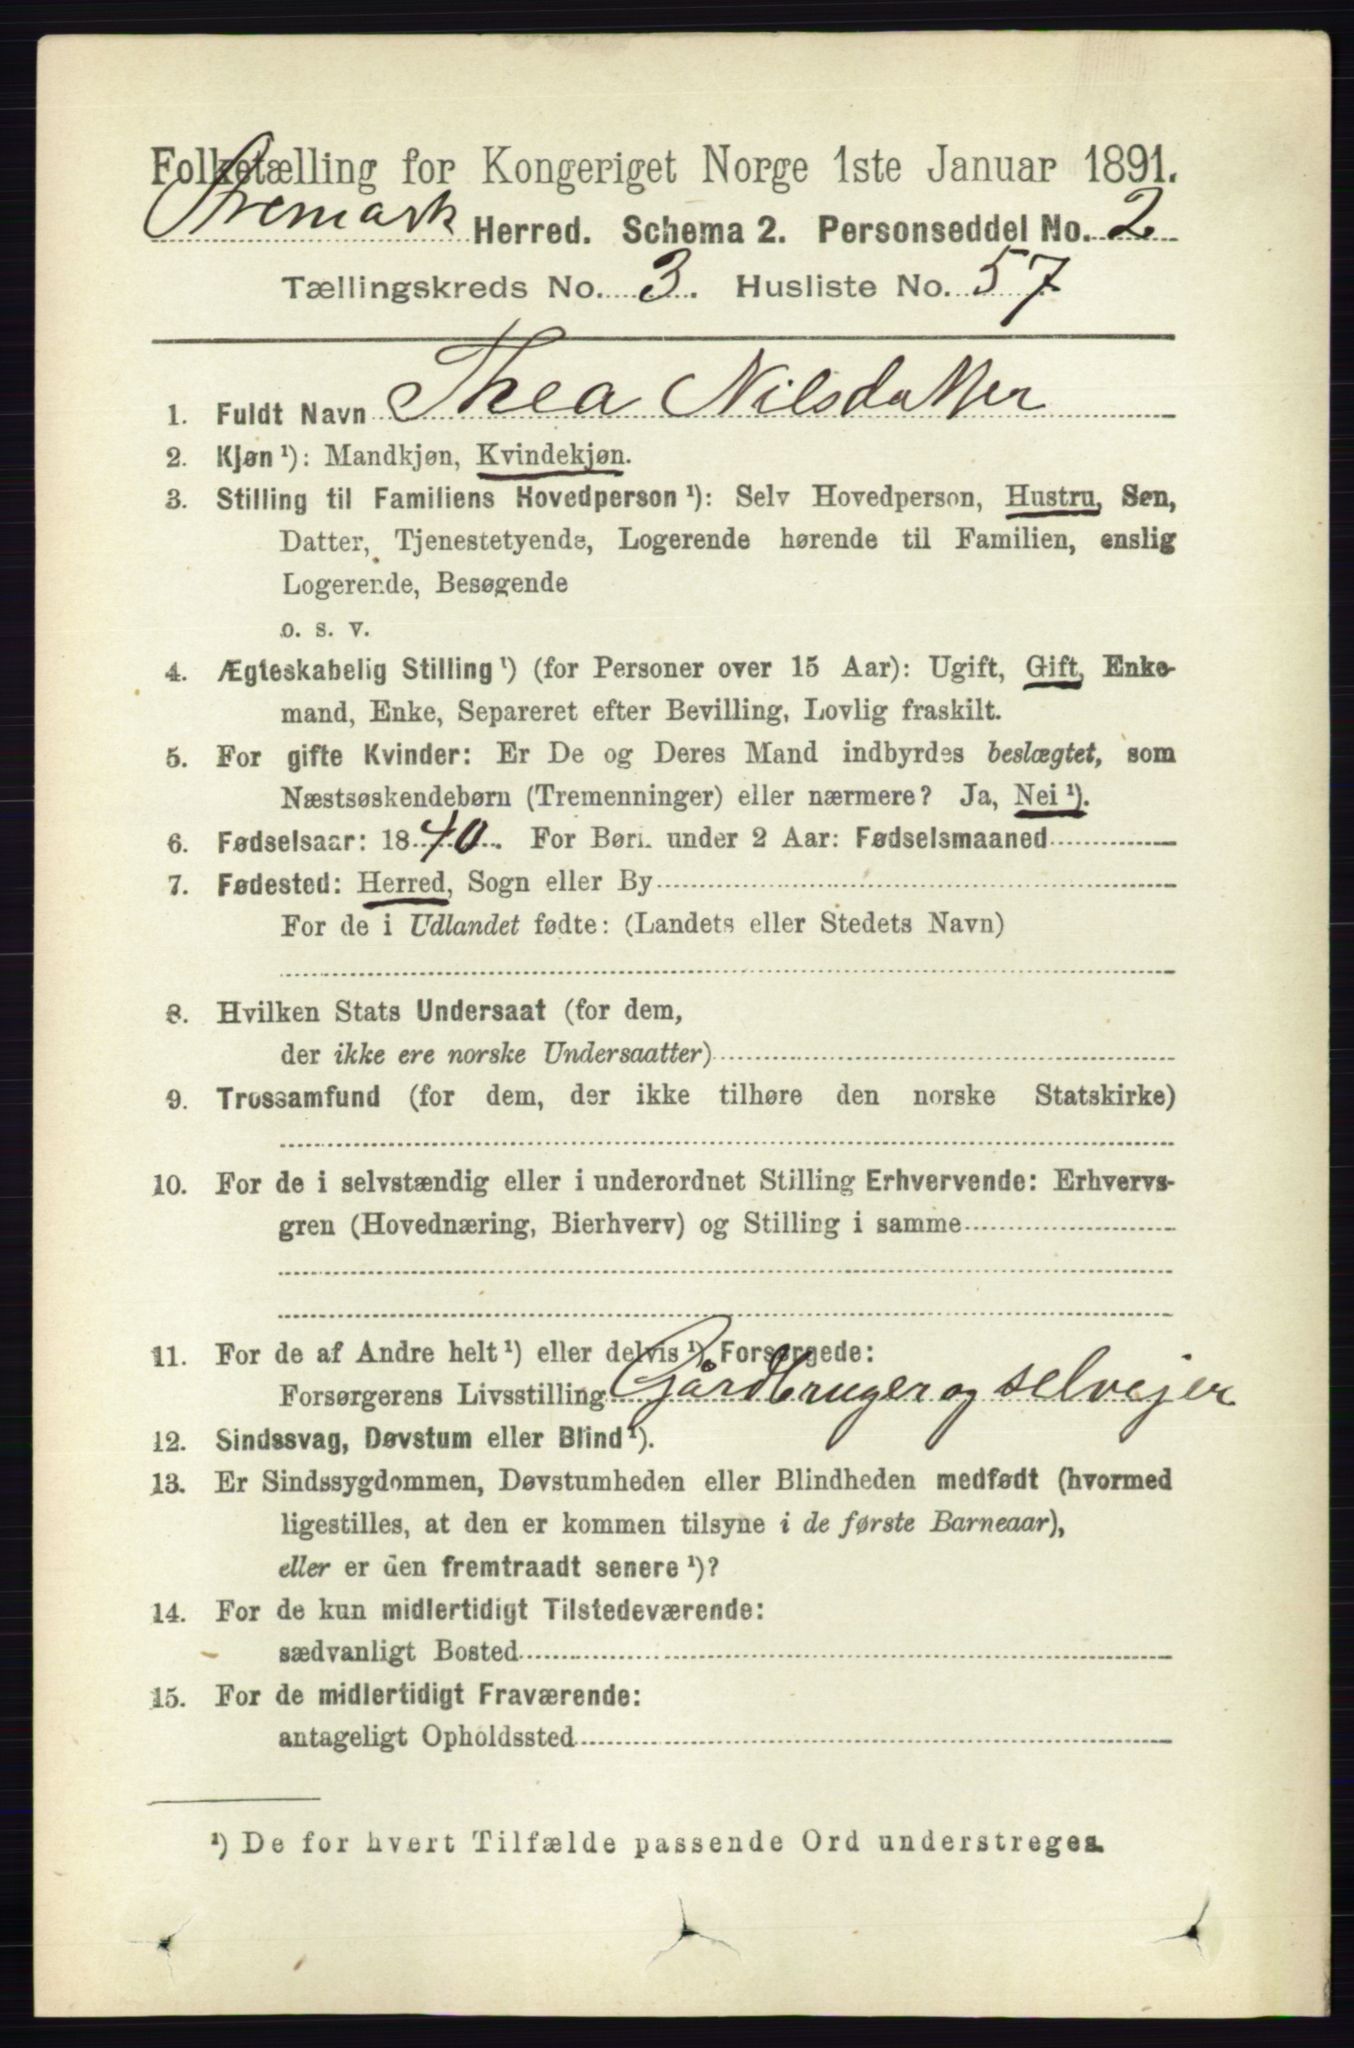 Folketælling for Kongeriget Norge 1ste Januar 1891.
Øremark Herred. Schema 2. Personseddel No. 2
Tællingskreds No. 3. Husliste No. 57
1. Fuldt Navn Thea Nilsdatter
2. Kjøn ¹): Mandkjøn, Kvindekjøn.
3. Stilling til Familiens Hovedperson ¹): Selv Hovedperson, Hustru, Søn,
Datter, Tjenestetyende, Logerende hørende til Familien, enslig
Logerende, Besøgende
o. s. v.
4. Ægteskabelig Stilling ¹) (for Personer over 15 Aar): Ugift, Gift, Enke-
mand, Enke, Separeret efter Bevilling, Lovlig fraskilt.
5. For gifte Kvinder: Er De og Deres Mand indbyrdes beslægtet, som
Næstsøskendebørn (Tremenninger) eller nærmere? Ja, Nei ¹).
6. Fødselsaar: 1840. For Børn under 2 Aar: Fødselsmaaned
7. Fødested: Herred, Sogn eller By
For de i Udlandet fødte: (Landets eller Stedets Navn)
8. Hvilken Stats Undersaat (for dem,
der ikke ere norske Undersaatter)
9. Trossamfund (for dem, der ikke tilhøre den norske Statskirke)
10. For de i selvstændig eller i underordnet Stilling Erhvervende: Erhvervs-
gren (Hovednæring, Bierhverv) og Stilling i samme
11. For de af Andre helt ¹) eller delvis ¹) Forsørgede:
Forsørgerens Livsstilling Gårdbruger og selvejer
12. Sindssvag, Døvstum eller Blind ¹).
13. Er Sindssygdommen, Døvstumheden eller Blindheden medfødt (hvormed
ligestilles, at den er kommen tilsyne i de første Barneaar),
eller er den fremtraadt senere ¹)?
14. For de kun midlertidigt Tilstedeværende:
sædvanligt Bosted
15. For de midlertidigt Fraværende:
antageligt Opholdssted
¹) De for hvert Tilfælde passende Ord understreges.